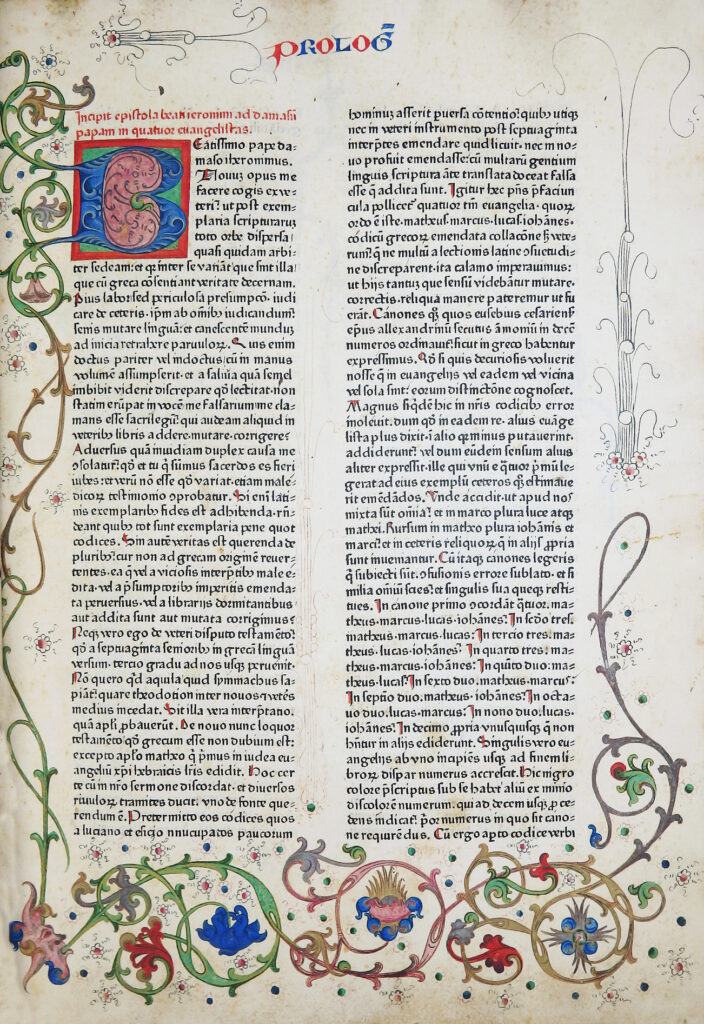 PROLOG̃
Incipit epistola beati ieronimi ad damasū
papam in quatuor euangelistas.
Eatissimo pape da-
maso iheronimus.
Nouuȝ opus me
facere cogis ex ve-
teri? ut post exem-
plaria scripturaruȝ
toto orbe dispersa
quasi quidam arbi-
ter sedeam: et qꝛ inter se variāt que sint illa
que cū greca cōsentiant veritate decernam.
Pius labor sed periculosa presumpcō. iudi
care de ceteris. ipm ab oīnibȝ iudicandum?
senis mutare linguā: et canescentē munduȝ
ad inicia retrahere paruulorȝ. Quis enim
doctus pariter vel indoctus/cū in manus
volumē assumpserit. et a saliua quā semel
imbibit viderit discrepare qd̄ lectitat. non
statim erūpat in vocē me falsarium me cla-
mans esse sacrilegū? qui audeam aliquid in
veteribȝ libris addere. mutare. corrigere?
Aduersus quā inuidiam duplex causa me
ɔsolatur? qd̄ et tu q̄ sūmus sacerdos es fieri
iubes: et verū nō esse qd̄ variat. etiam male-
dicorȝ testimonio ɔprobatur. Si enī lati-
nis exemplaribȝ fides est adhibenda. rn̄-
deant quibȝ tot sunt exemplaria pene quot
codices. Sin autē veritas est querenda de
pluribȝ? cur non ad grecam originē reuer-
tentes. ea q̄ vel a viciosis interp̄tibȝ male e-
dita. vel a p̄sumptoribȝ imperitis emenda-
ta peruersius. vel a librarijs dormitantibus
aut addita sunt aut mutata corrigimus?
Neqȝ vero ego de veteri disputo testamēto?
qd̄ a septuaginta senioribȝ in grecā linguā
versum. tercio gradu ad nos usqȝ peruenit.
Nō quero qd̄ aquila quid symmachus sa-
piāt? quare theodotion inter nouos et veteēs
medius incedat. Sit illa vera interp̄tatio.
quā apl̄i ꝓbauerūt. De nouo nunc loquor
testamēto/qd̄ grecum esse non dubium est:
excepto apl̄o matheo q̄ p̄mus in iudea eu-
angeliū xp̄i hebraicis lr̄is edidit. Hoc cer
te cū in nr̄o sermone discordat. et diuersos
riuulorȝ tramites ducit. uno de fonte que-
rendum ē. Pretermitto eos codices quos
a luciano et esicio nūcupatos paucorum
hominuȝ asserit puersa cōtentio? quibȝ utiqȝ
nec in veteri instrumento post septuaginta
interp̄tes emendare quid licuit. nec in no-
uo profuit emendasse: cū multarū gentium
linguis scriptura āte translata doceat falsa
esse q̄ addita sunt. Igitur hec p̄n̄s p̄faciun
cula pollicet̄ quatuor tm̄ euangelia. quorȝ
ordo ē iste. matheus. marcus. lucas. iohānes.
codicū grecorȝ emendata collacōne sȝ vete-
rum? q̄ ne multū a lectionis latine ɔsuetudi-
ne discreparent. ita calamo imperauimus:
ut hijs tantuȝ que sensū videbātur mutare.
correctis. reliqua manere pateremur ut fu
erāt. Canones qȝ quos eusebius cesariēn̄
ep̄us allexandrinū secutus amoniū in decē
numeros ordinauit? sicut in greco habentur
expressimus. Qd̄ si quis de curiosis voluerit
nosse q̄ in euangelijs vel eadem vel vicina
vel sola sint? eorum distinctōne cognoscet.
Magnus siq̄dē hic in nr̄is codicibȝ error
inoleuit. dum qd̄ in eadem re. alius euāge
lista plus dixit. i alio qꝛ minus putauerint.
addiderunt? vel dum eūdem sensum alius
aliter expressit. ille qui vnū e q̄tuor p̄mū le
gerat ad eius exemplū ceteros qȝ estimaue
rit emēdādos. Vnde accidit ut apud nos
mixta sūt om̄ia? et in marco plura luce atqȝ
mathei. Rursum in matheo plura iohānis et
marci? et in ceteris reliquorȝ q̄ in alijs ꝓpria
sunt inueniantur. Cū itaqȝ canones legeris
q̄ subiecti sūt. ɔfusionis errore sublato. et si
milia om̄iū scies? et singulis sua queqȝ resti-
tues. In canone primo ɔcordāt q̄tuor. ma-
theus. marcus. lucas. iohānes: In scd̄o tres.
matheus. marcus. lucas: In tercio tres. ma-
theus. lucas. iohānes? In quarto tres. ma-
theus. marcus. iohānes: In quīto duo: ma-
theus. lucas? In sexto duo. matheus. marcus?
In septīo duo. matheus. iohānes? In octa-
uo duo. lucas. marcus: In nono duo. lucas.
iohānes? In decimo ꝓpria vnusquisqȝ q̄ non
hn̄tur in alijs ediderunt. Singulis vero eu-
angelijs ab vno incipiēs usqȝ ad finem li-
brorȝ dispar numerus accrescit. Hic nigro
colore p̄scriptus sub se habet aliū ex minio
discolorē numerum. qui ad decem usqȝ ꝓce
dens indicat? p̄or numerus in quo sit cano-
ne requirēdus. Cū ergo apto codice verbi